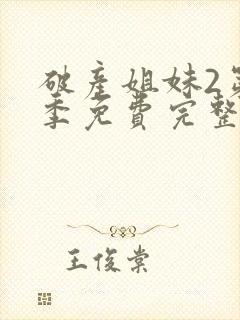 破产姐妹2第
季免费完整
王俊棠